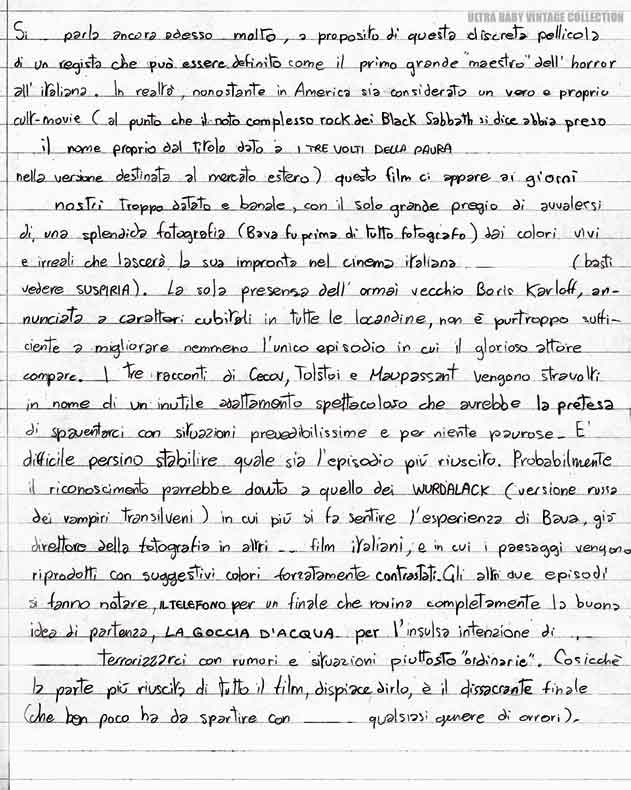 ULTRA BABY VINTAGE COLLECTION
Si parla ancora adesso molto, a proposito di questa discreta pellicola
di un regista che può essere definito come il primo grande "maestro" dell'horror
all'italiana. In realtà, nonostante in America sia considerato un vero e proprio
cult-movie (al punto che il noto complesso rock dei Black Sabbath si dice abbia preso
il nome proprio dal titolo dato a I TRE VOLTI DELLA PAURA
nella versione destinata al mercato estero) questo film ci appare ai giorni
nostri troppo datato e banale, con il solo grande pregio di avvalersi
di, una splendida fotografia (Bava fu prima di tutto fotografo) dai colori vivi
e irreali che lascerà la sua impronta nel cinema italiano (basti
vedere SUSPIRIA). La sola presenza dell'ormai vecchio Boris Karloff, an-
nunciata a caratteri cubitali in tutte le locandine, non è purtroppo suffi-
ciente a migliorare nemmeno l'unico episodio in cui il glorioso attore
compare. I tre racconti di Cecov, Tolstoi e Maupassant vengono stravolti
in nome di un inutile adattamento spettacoloso che avrebbe la pretesa
di spaventarci con situazioni prevedibilissime e per niente paurose. E'
difficile persino stabilire quale sia l'episodio più riuscito. Probabilmente
il riconoscimento parrebbe dovuto a quello dei WURDALACK (versione russa
dei vampiri transilveni) in cui più si fa sentire l'esperienza di Bava, già
direttore della fotografia in altri film italiani, e in cui i paesaggi vengono
riprodotti con suggestivi colori forzatamente contrastati. Gli altri due episodi
si fanno notare, IL TELEFONO per un finale che rovina completamente la buona
idea di partenza, LA GOCCIA D'ACQUA per l'insulsa intenzione di
terrorizzarci con rumori e situazioni piuttosto "ordinarie". Cosicchè
la parte più riuscita di tutto il film, dispiace dirlo, è il dissacrante finale
(che ben poco ha da spartire con qualsiasi genere di orrori).